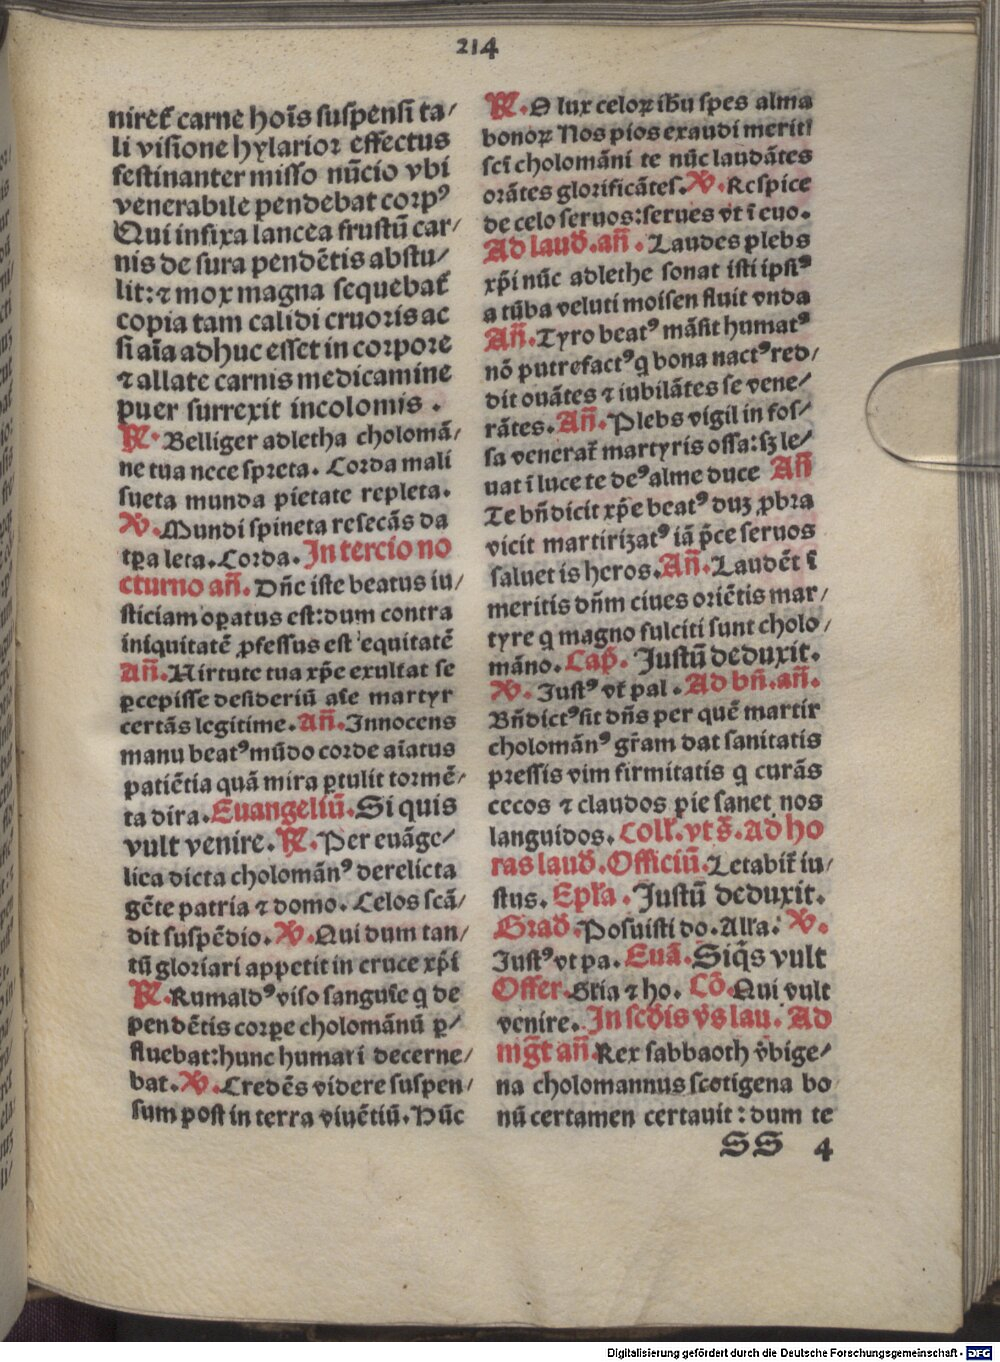 214
niret̃ carne hoĩs suspensi ta⸗
li visione hylarior effectus
festinanter misso nũcio vbi
venerabile pendebat corpꝰ
Qui infixa lancea frustũ car⸗
nis de sura pendẽtis abstu⸗
lit: ⁊ mox magna sequebat̃
copia tam calidi cruoris ac
si aĩa adhuc esset in corpore
⁊ allate carnis medicamine
puer surrexit incolomis.
℟. Belliger adletha cholomã⸗
ne tua nece spreta. Corda mali
sueta munda pietate repleta.
℣. Mundi spineta resecãs da
tꝑa leta. Corda. In tercio no
cturno añ. Dñe iste beatus iu⸗
sticiam oꝑatus est: dum contra
iniquitatẽ ꝓfessus est equitatẽ
Añ. Virtute tua xp̃e exultat se
ꝑcepisse desideriũ aĩe martyr
certãs legitime. Añ. Innocens
manu beatꝰ mũdo corde aĩatus
patiẽtia quã mira ꝑtulit tormẽ⸗
ta dira. Euangeliũ. Si quis
vult venire. ℟. Per euãge⸗
lica dicta cholomãnꝰ derelicta
gẽte patria ⁊ domo. Celos scã⸗
dit suspẽdio. ℣. Qui dum tan⸗
tũ gloriari appetit in cruce xp̃i
℟. Rumaldꝰ viso sanguĩe q̃ de
pendẽtis corpe cholomãnũ ꝑ⸗
fluebat: hunc humari decerne⸗
bat. ℣. Credẽs videre suspen⸗
sum post in terra viuẽtiũ. Nũc
℟. O lux celoꝝ ihũ spes alma
bonoꝝ Nos pios exaudi meriti
scĩ cholomãni te nũc laudãtes
orãtes glorificãtes. ℣. Respice
de celo seruos: serues vt ĩ euo.
Ad laud̃. añ. Laudes plebs
xp̃i nũc adlethe sonat isti ipsiꝰ
a tũba veluti moisen fluit vnda
Añ. Tyro beatꝰ mãsit humatꝰ
nõ putrefactꝰ q̃ bona nactꝰ red⸗
dit ouãtes ⁊ iubilãtes se vene⸗
rãtes. Añ. Plebs vigil in fos⸗
sa venerat̃ martyris ossa: sꝫ le⸗
uat ĩ luce te deꝰ alme duce Añ
Te bñdicit xp̃e beatꝰ duꝫ ꝓbra
vicit martirizatꝰ iã p̃ce seruos
saluet is heros. Añ. Laudẽt ĩ
meritis dñm ciues oriẽtis mar⸗
tyre q̃ magno fulciti sunt cholo⸗
mãno. Cap̃. Justũ deduxit.
℣. Justꝰ vt̃ pal. Ad bñ. añ.
Bñdictꝰ sit dñs per quẽ martir
cholomãnꝰ gr̃am dat sanitatis
pressis vim firmitatis q̃ curãs
cecos ⁊ claudos pie sanet nos
languidos. Coll̃. vt s̃. Ad ho
ras laud̃. Officiũ. Letabit̃ iu⸗
stus. Epl̃a. Justũ deduxit.
Grad̃. Posuisti do. Alľa. ℣.
Justꝰ vt pa. Euã. Siq̃s vult
Offer. Gľia ⁊ ho. Cõ. Qui vult
venire. In scd̃is v̓s lau. Ad
mg̃t añ. Rex sabbaoth v̓bige⸗
na cholomannus scotigena bo
nũ certamen certauit: dum te
SS 4
Digitalisierung gefördert durch die Deutsche Forschungsgemeinschaft - DFG